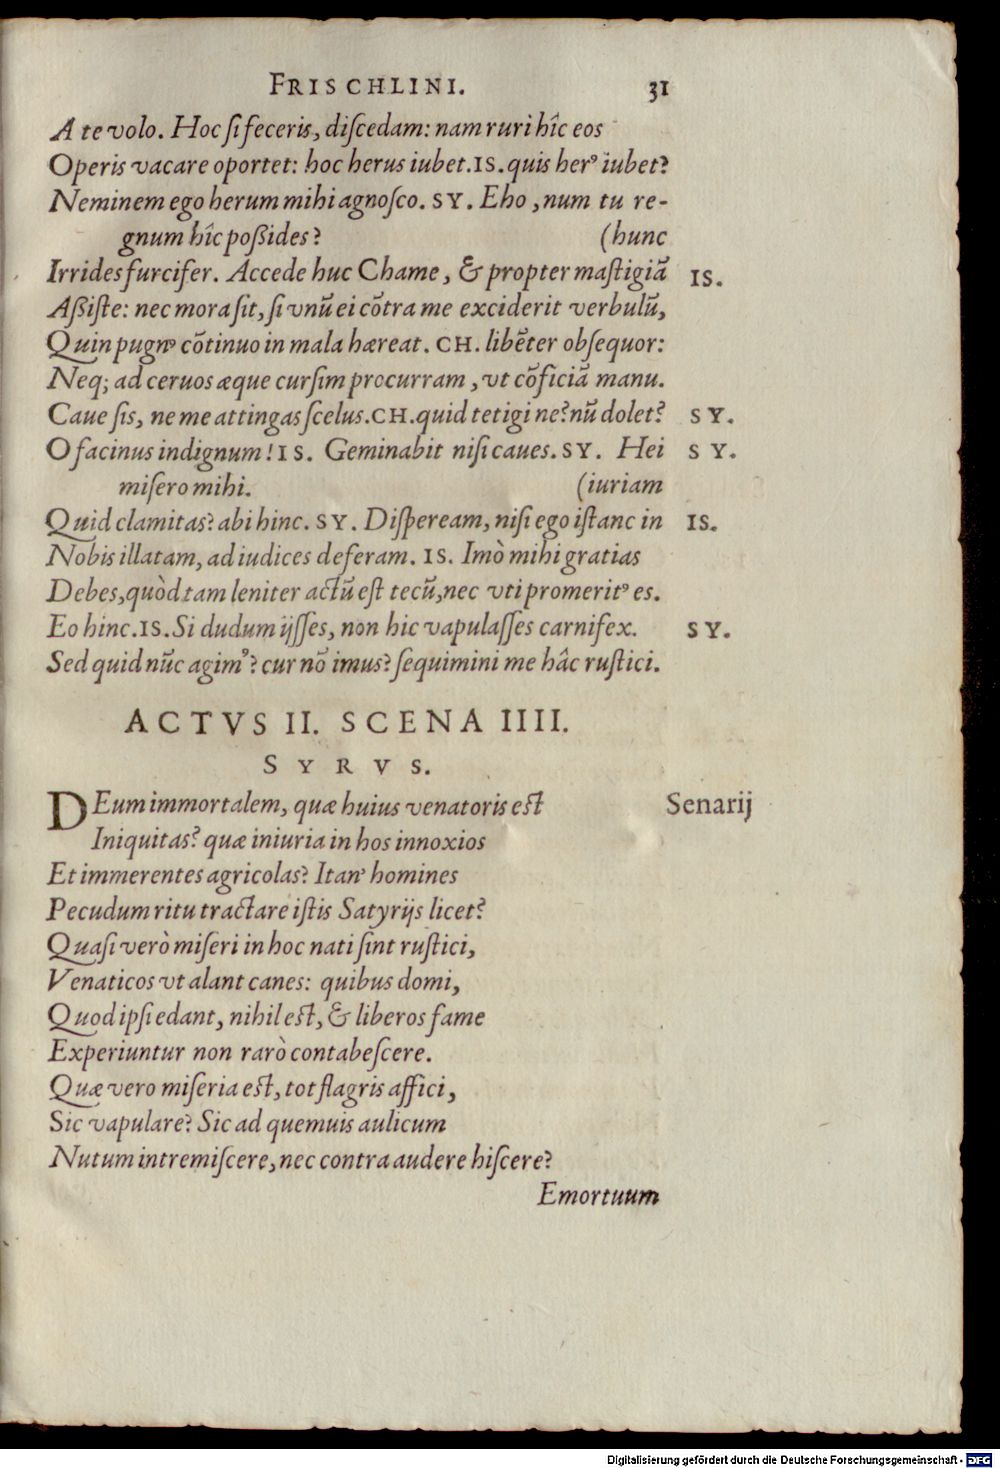 FRISCHLINI. 31
A te volo. Hoc ſi feceris, diſcedam: nam ruri hîc eos
Operis vacare oportet: hoc herus iubet. IS. quis herꝰ iubet?
Neminem ego herum mihi agnoſco. SY. Eho, num tu re-
gnum hîc poßides? (hunc
Irrides furcifer. Accede huc Chame, & propter maſtigiā IS.
Aßiſte: nec mora ſit, ſi vnū ei cōtra me exciderit verbulū,
Quin pugnꝰ cōtinuo in mala hæreat. CH. libēter obſequor:
Neq; ad ceruos æque curſim procurram, vt cōficiā manu.
Caue ſis, ne me attingas ſcelus. CH. quid tetigi ne? nū dolet? SY.
O facinus indignum! IS. Geminabit niſi caues. SY. Hei SY.
miſero mihi. (iuriam
Quid clamitas? abi hinc. SY. Diſpeream, niſi ego iſtanc in IS.
Nobis illatam, ad iudices deferam. IS. Imò mihi gratias
Debes, quòd tam leniter actū eſt tecū, nec vti promeritꝰ es.
Eo hinc. IS. Si dudum ijſſes, non hic vapulaſſes carnifex. SY.
Sed quid nūc agimꝰ? cur nō imus? ſequimini me hâc ruſtici.
ACTVS II. SCENA IIII.
SYRVS.
DEum immortalem, quæ huius venatoris eſt Senarij
Iniquitas? quæ iniuria in hos innoxios
Et immerentes agricolas? Itan' homines
Pecudum ritu tractare iſtis Satyrijs licet?
Quaſi verò miſeri in hoc nati ſint ruſtici,
Venaticos vt alant canes: quibus domi,
Quod ipſi edant, nihil eſt, & liberos fame
Experiuntur non rarò contabeſcere.
Quæ vero miſeria eſt, tot flagris affici,
Sic vapulare? Sic ad quemuis aulicum
Nutum intremiſcere, nec contra audere hiſcere?
Emortuum
Digitalisierung gefördert durch die Deutsche Forschungsgemeinschaft - DFG